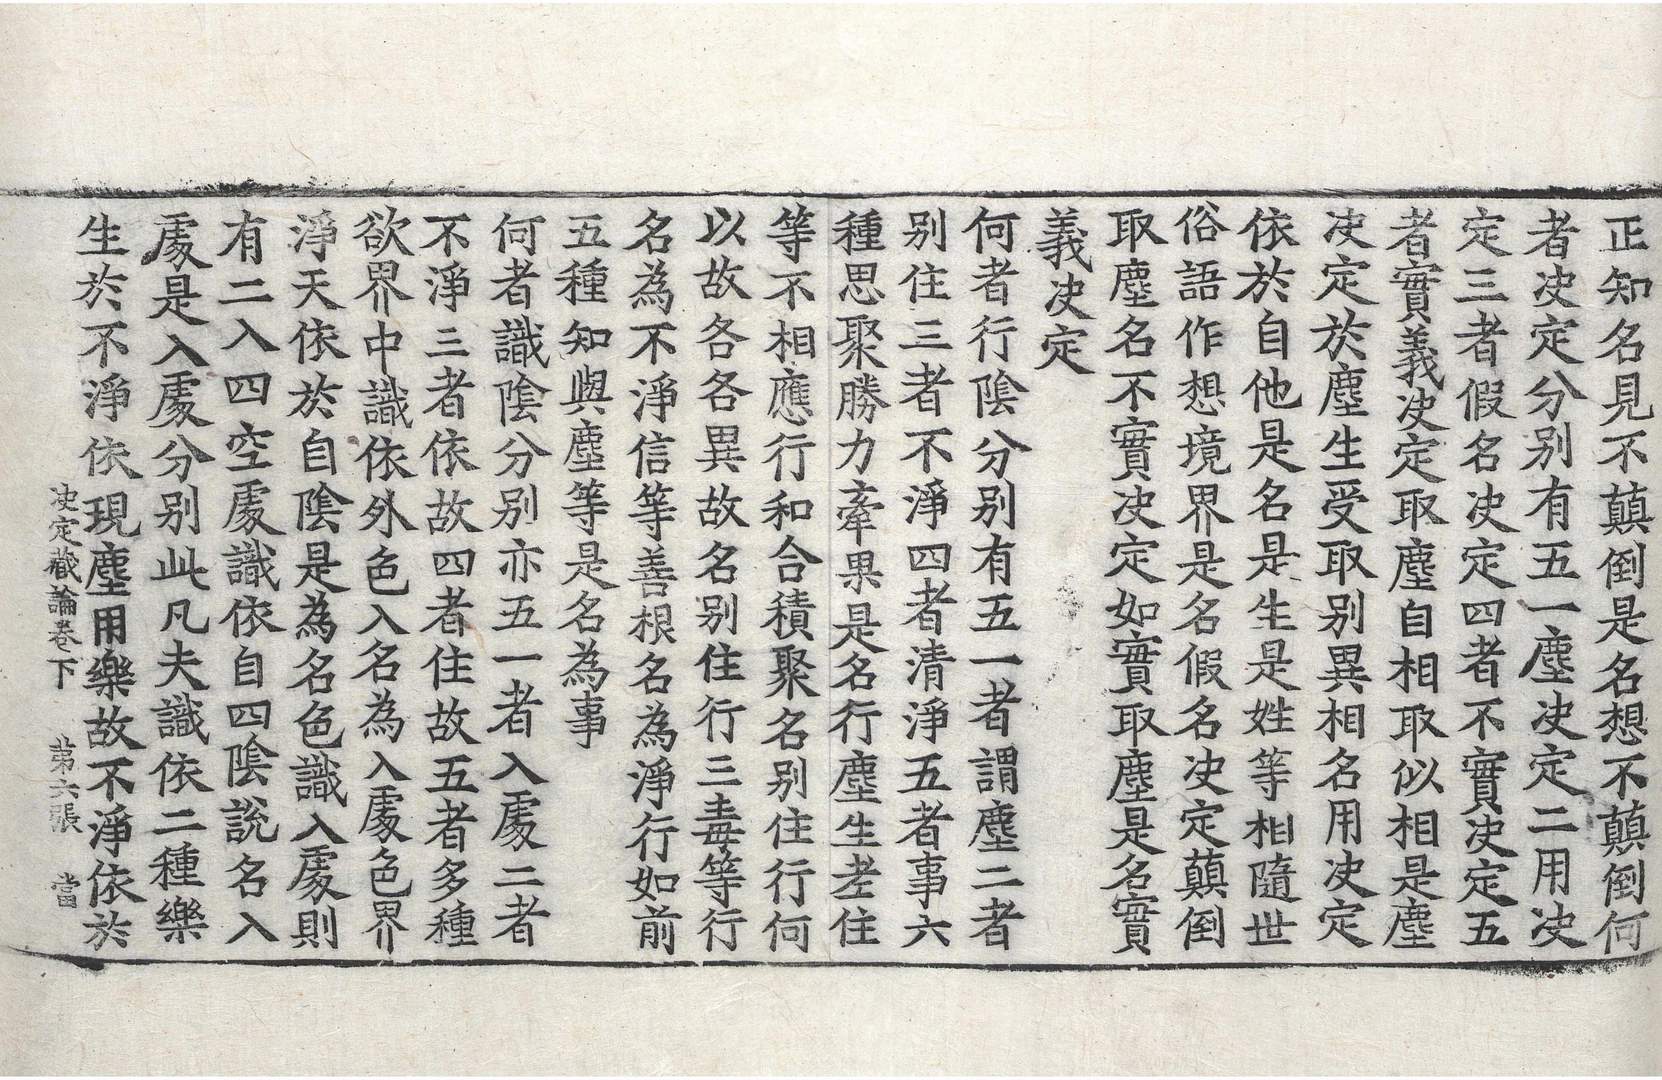 正知名見不顛倒是名想不顛倒何
者决定分別有五一塵决定二用决
定三者假名决定四者不實决定五
者實義决定取塵自相取似相是塵
决定於塵生受取別異相名用决定
依於自他是名是生是姓等相隨世
俗語作想境界是名假名决定顛倒
取塵名不實决定如實取塵是名實
義决定
何者行陰分別有五一者謂塵二者
別住三者不淨四者清淨五者事六
種思聚勝力牽果是名行塵生老住
等不相應行和合積聚名別住行何
以故各各異故名別住行三毒等行
名為不淨信等善根名為淨行如前
五種知與塵等是名為事
何者識陰分別亦五一者入處二者
不淨三者依故四者住故五者多種
欲界中識依外色入名為入處色界
淨天依於自陰是為名色識入處則
有二入四空處識依自四陰說名入
處是入處分別此凡夫識依二種樂
生於不淨依現塵用樂故不淨依於
决定藏論卷下　第六張　當